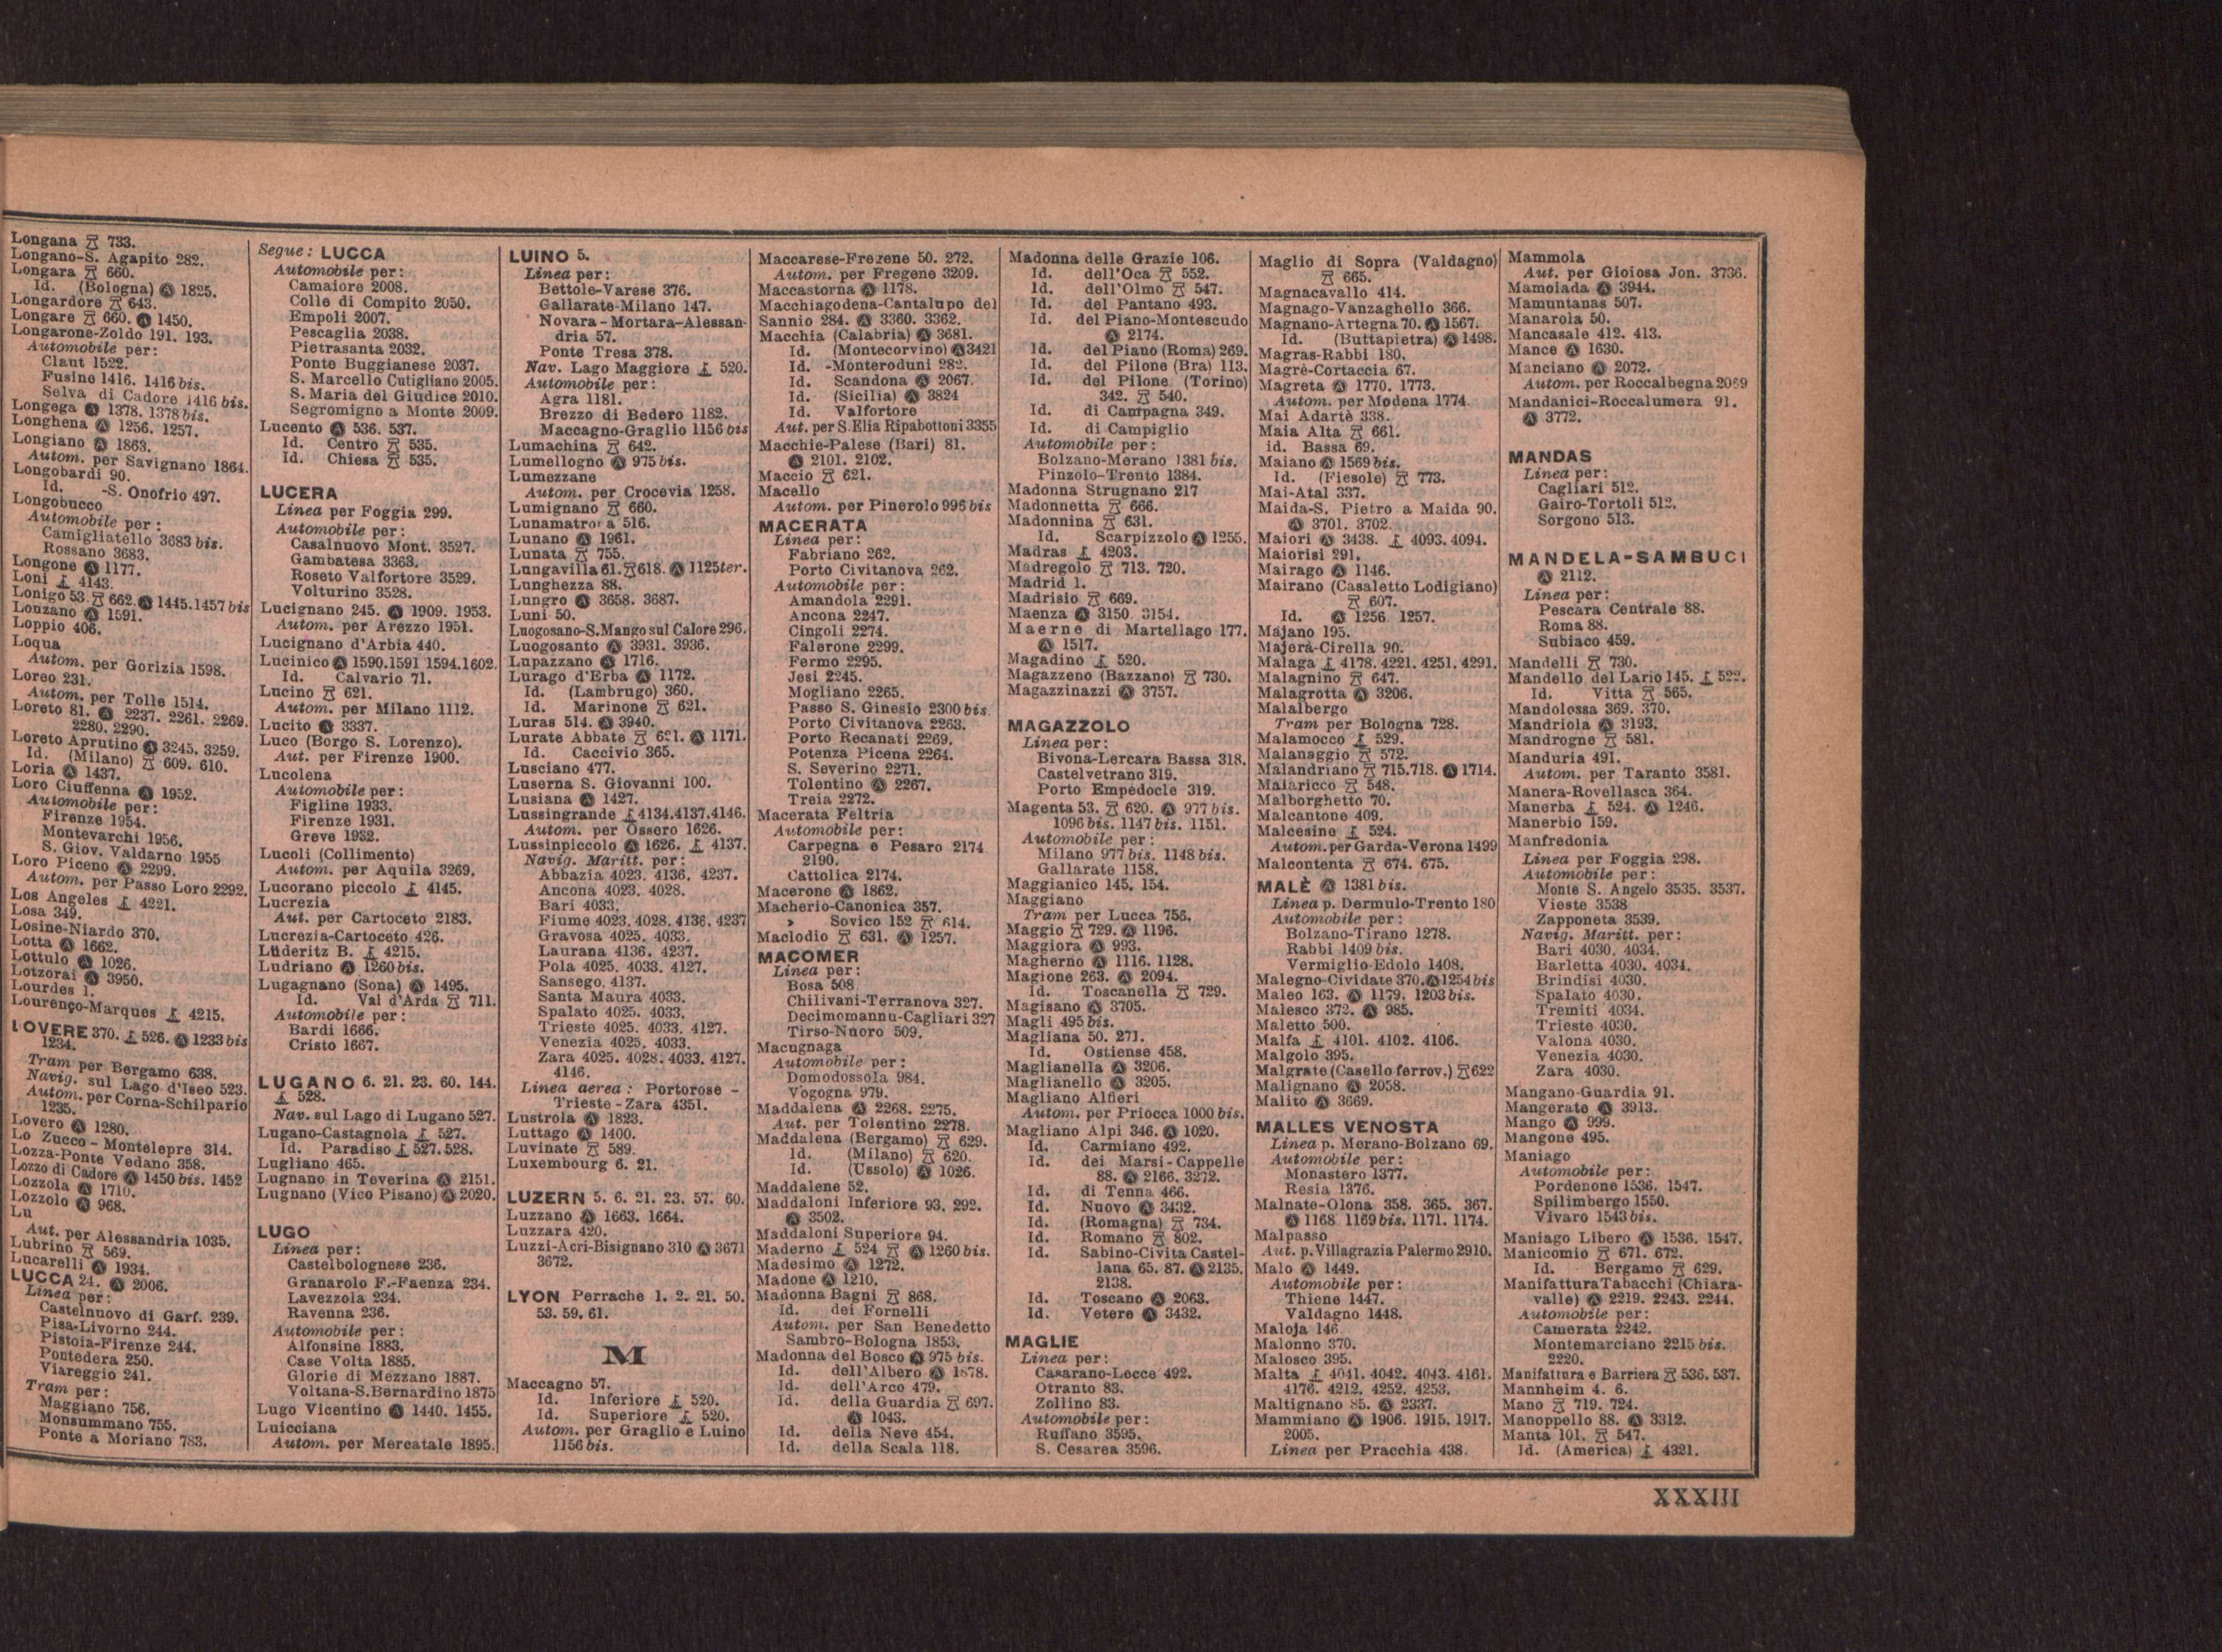 Longana 733.
Longano-S. Agapito 282.
Longara 660.
Id. (Bologna) Ⓐ 1825.
Longardore 643.
Longare 660. Ⓐ 1450.
Longarone-Zoldo 191. 193.
Automobile per:
Claut 1522.
Fusine 1416. 1416 bis.
Selva di Cadore 1416 bis.
Longega Ⓐ 1378. 1378 bis.
Longhena Ⓐ 1256. 1257.
Longiano Ⓐ 1863.
Autom. per Savignano 1864.
Longobardi 90.
Id. -S. Onofrio 497.
Longobucco
Automobile per:
Camigliatello 3683 bis.
Rossano 3683.
Longone Ⓐ 1177.
Loni 4143.
Lonigo 53. 662. Ⓐ 1445. 1457 bis
Lonzano Ⓐ 1591.
Loppio 406.
Loqua
Autom. per Gorizia 1598.
Loreo 231.
Autom. per Tolle 1514.
Loreto 81. Ⓐ 2237. 2261. 2269.
2280. 2290.
Loreto Aprutino Ⓐ 3245. 3259.
Id. (Milano) 609. 610.
Loria Ⓐ 1437.
Loro Ciuffenna Ⓐ 1952.
Automobile per:
Firenze 1954.
Montevarchi 1956.
S. Giov. Valdarno 1955
Loro Piceno Ⓐ 2299.
Autom. per Passo Loro 2292.
Los Angeles 4221.
Losa 349.
Losine-Niardo 370.
Lotta Ⓐ 1662.
Lottulo Ⓐ 1026.
Lotzorai Ⓐ 3950.
Lourdes 1.
Lourenço-Marques 4215.
LOVERE 370. 526. Ⓐ 1233 bis
1234.
Tram per Bergamo 638.
Navig. sul Lago d'Iseo 523.
Autom. per Corna-Schilpario
1235.
Lovero Ⓐ 1280.
Lo Zucco - Montelepre 314.
Lozza-Ponte Vedano 358.
Lozzo di Cadore Ⓐ 1450 bis. 1452
Lozzola Ⓐ 1710.
Lozzolo Ⓐ 968.
Lu
Aut. per Alessandria 1035.
Lubrino 569.
Lucarelli Ⓐ 1934.
LUCCA 24. Ⓐ 2006.
Linea per:
Castelnuovo di Garf. 239.
Pisa-Livorno 244.
Pistoia-Firenze 244.
Pontedera 250.
Viareggio 241.
Tram per:
Maggiano 756.
Monsummano 755.
Ponte a Moriano 783.
Segue: LUCCA
Automobile per:
Camaiore 2008.
Colle di Compito 2050.
Empoli 2007.
Pescaglia 2038.
Pietrasanta 2032.
Ponte Buggianese 2037.
S. Marcello Cutigliano 2005.
S. Maria del Giudice 2010.
Segromigno a Monte 2009.
Lucento Ⓐ 536. 537.
Id. Centro 535.
Id. Chiesa 535.
LUCERA
Linea per Foggia 299.
Automobile per:
Casalnuovo Mont. 3527.
Gambatesa 3363.
Roseto Valfortore 3529.
Volturino 3528.
Lucignano 245. Ⓐ 1909. 1953.
Autom. per Arezzo 1951.
Lucignano d'Arbia 440.
Lucinico Ⓐ 1590.1591 1594.1602.
Id. Calvario 71.
Lucino 621.
Autom. per Milano 1112.
Lucito Ⓐ 3337.
Luco (Borgo S. Lorenzo).
Aut. per Firenze 1900.
Lucolena
Automobile per:
Figline 1933.
Firenze 1931.
Greve 1932.
Lucoli (Collimento)
Autom. per Aquila 3269.
Lucorano piccolo 4145.
Lucrezia
Aut. per Cartoceto 2183.
Lucrezia-Cartoceto 426.
Lüderitz B. 4215.
Ludriano Ⓐ 1260 bis.
Lugagnano (Sona) Ⓐ 1495.
Id. Val d'Arda 711.
Automobile per:
Bardi 1666.
Cristo 1667.
LUGANO 6. 21. 23. 60. 144.
528.
Nav. sul Lago di Lugano 527.
Lugano-Castagnola 527.
Id. Paradiso 527. 528.
Lugliano 465.
Lugnano in Teverina Ⓐ 2151.
Lugnano (Vico Pisano) Ⓐ 2020.
LUGO
Linea per:
Castelbolognese 236.
Granarolo F.-Faenza 234.
Lavezzola 234.
Ravenna 236.
Automobile per:
Alfonsine 1883.
Case Volta 1885.
Glorie di Mezzano 1887.
Voltana-S.Bernardino 1875
Lugo Vicentino Ⓐ 1440. 1455.
Luicciana
Autom. per Mercatale 1895.
LUINO 5.
Linea per:
Bettole-Varese 376.
Gallarate-Milano 147.
Novara - Mortara-Alessan-
dria 57.
Ponte Tresa 378.
Nav. Lago Maggiore 520.
Automobile per:
Agra 1181.
Brezzo di Bedero 1182.
Maccagno-Graglio 1156 bis
Lumachina 642.
Lumellogno Ⓐ 975 bis.
Lumezzane
Autom. per Crocevia 1258.
Lumignano 660.
Lunamatrona 516.
Lunano Ⓐ 1961.
Lunata 755.
Lungavilla 61. 618. Ⓐ 1125ter.
Lunghezza 88.
Lungro Ⓐ 3658. 3687.
Luni 50.
Luogosano-S.Mango sul Calore 296.
Luogosanto Ⓐ 3931. 3936.
Lupazzano Ⓐ 1716.
Lurago d'Erba Ⓐ 1172.
Id. (Lambrugo) 360.
Id. Marinone 621.
Luras 514. Ⓐ 3940.
Lurate Abbate 621. Ⓐ 1171.
Id. Caccivio 365.
Lusciano 477.
Luserna S. Giovanni 100.
Lusiana Ⓐ 1427.
Lussingrande 4134.4137.4146.
Autom. per Ossero 1626.
Lussinpiccolo Ⓐ 1626. 4137.
Navig. Maritt. per:
Abbazia 4023. 4136. 4237.
Ancona 4023. 4028.
Bari 4033.
Fiume 4023. 4028. 4136. 4237
Gravosa 4025. 4033.
Laurana 4136. 4237.
Pola 4025. 4033. 4127.
Sansego. 4137.
Santa Maura 4033.
Spalato 4025. 4033.
Trieste 4025. 4033. 4127.
Venezia 4025. 4033.
Zara 4025. 4028. 4033. 4127.
4146.
Linea aerea: Portorose -
Trieste - Zara 4351.
Lustrola Ⓐ 1823.
Luttago Ⓐ 1400.
Luvinate 589.
Luxembourg 6. 21.
LUZERN 5. 6. 21. 23. 57. 60.
Luzzano Ⓐ 1663. 1664.
Luzzara 420.
Luzzi-Acri-Bisignano 310 Ⓐ 3671
3672.
LYON Perrache 1. 2. 21. 50.
53. 59. 61.
M
Maccagno 57.
Id. Inferiore 520.
Id. Superiore 520.
Autom. per Graglio e Luino
1156 bis.
Maccarese-Fregene 50. 272.
Autom. per Fregene 3209.
Maccastorna Ⓐ 1178.
Macchiagodena-Cantalupo del
Sannio 284. Ⓐ 3360. 3362.
Macchia (Calabria) Ⓐ 3681.
Id. (Montecorvino) Ⓐ 3421
Id. -Monteroduni 282.
Id. Scandona Ⓐ 2067.
Id. (Sicilia) Ⓐ 3824
Id. Valfortore
Aut. per S. Elia Ripabottoni 3355
Macchie-Palese (Bari) 81.
Ⓐ 2101. 2102.
Maccio 621.
Macello
Autom. per Pinerolo 996 bis
MACERATA
Linea per:
Fabriano 262.
Porto Civitanova 262.
Automobile per:
Amandola 2291.
Ancona 2247.
Cingoli 2274.
Falerone 2299.
Fermo 2295.
Jesi 2245.
Mogliano 2265.
Passo S. Ginesio 2300 bis.
Porto Civitanova 2263.
Porto Recanati 2269.
Potenza Picena 2264.
S. Severino 2271.
Tolentino Ⓐ 2267.
Treia 2272.
Macerata Feltria
Automobile per:
Carpegna e Pesaro 2174
2190.
Cattolica 2174.
Macerone Ⓐ 1862.
Macherio-Canonica 357.
» Sovico 152 614.
Maclodio 631. Ⓐ 1257.
MACOMER
Linea per:
Bosa 508
Chilivani-Terranova 327.
Decimomannu-Cagliari 327
Tirso-Nuoro 509.
Macugnaga
Automobile per:
Domodossola 984.
Vogogna 979.
Maddalena Ⓐ 2268. 2275.
Aut. per Tolentino 2278.
Maddalena (Bergamo) 629.
Id. (Milano) 620.
Id. (Ussolo) Ⓐ 1026.
Maddalene 52.
Maddaloni Inferiore 93. 292.
Ⓐ 3502.
Maddaloni Superiore 94.
Maderno 524 Ⓐ 1260 bis.
Madesimo Ⓐ 1272.
Madone Ⓐ 1210.
Madonna Bagni 868.
Id. dei Fornelli
Autom. per San Benedetto
Sambro-Bologna 1853.
Madonna del Bosco Ⓐ 975 bis.
Id. dell'Albero Ⓐ 1878.
Id. dell'Arco 479.
Id. della Guardia 697.
Ⓐ 1043.
Id. della Neve 454.
Id. della Scala 118.
Madonna delle Grazie 106.
Id. dell'Oca 552.
Id. dell'Olmo 547.
Id. del Pantano 493.
Id. del Piano-Montescudo
Ⓐ 2174.
Id. del Piano (Roma) 269.
Id. del Pilone (Bra) 113.
Id. del Pilone (Torino)
342. 540.
Id. di Campagna 349.
Id. di Campiglio
Automobile per:
Bolzano-Merano 1381 bis.
Pinzolo-Trento 1384.
Madonna Strugnano 217
Madonnetta 666.
Madonnina 631.
Id. Scarpizzolo Ⓐ 1255.
Madras 4203.
Madregolo 713. 720.
Madrid 1.
Madrisio 669.
Maenza Ⓐ 3150. 3154.
Maerne di Martellago 177.
Ⓐ 1517.
Magadino 520.
Magazzeno (Bazzano) 730.
Magazzinazzi Ⓐ 3757.
MAGAZZOLO
Linea per:
Bivona-Lercara Bassa 318.
Castelvetrano 319.
Porto Empedocle 319.
Magenta 53. 620. Ⓐ 977 bis.
1096 bis. 1147 bis. 1151.
Automobile per:
Milano 977 bis. 1148 bis.
Gallarate 1158.
Maggianico 145. 154.
Maggiano
Tram per Lucca 756.
Maggio 729. Ⓐ 1196.
Maggiora Ⓐ 993.
Magherno Ⓐ 1116. 1128.
Magione 263. Ⓐ 2094.
Id. Toscanella 729.
Magisano Ⓐ 3705.
Magli 495 bis.
Magliana 50. 271.
Id. Ostiense 458.
Maglianella Ⓐ 3206.
Maglianello Ⓐ 3205.
Magliano Alfieri
Autom. per Priocca 1000 bis.
Magliano Alpi 346. Ⓐ 1020.
Id. Carmiano 492.
Id. dei Marsi-Cappelle
88. Ⓐ 2166. 3272.
Id. di Tenna 466.
Id. Nuovo Ⓐ 3432.
Id. (Romagna) 734.
Id. Romano 802.
Id. Sabino-Civita Castel-
lana 65. 87. Ⓐ 2135.
2138.
Id. Toscano Ⓐ 2063.
Id. Vetere Ⓐ 3432.
MAGLIE
Linea per:
Casarano-Lecce 492.
Otranto 83.
Zollino 83.
Automobile per:
Ruffano 3595.
S. Cesarea 3596.
Maglio di Sopra (Valdagno)
665.
Magnacavallo 414.
Magnago-Vanzaghello 366.
Magnano-Artegna 70. Ⓐ 1567.
Id. (Buttapietra) Ⓐ 1498.
Magras-Rabbi 180.
Magrè-Cortaccia 67.
Magreta Ⓐ 1770. 1773.
Autom. per Modena 1774.
Mai Adartè 338.
Maia Alta 661.
id. Bassa 69.
Maiano Ⓐ 1569 bis.
Id. (Fiesole) 773.
Mai-Atal 337.
Maida-S. Pietro a Maida 90.
Ⓐ 3701. 3702.
Maiori Ⓐ 3438. 4093. 4094.
Maiorisi 291.
Mairago Ⓐ 1146.
Mairano (Casaletto Lodigiano)
607.
Id. Ⓐ 1256. 1257.
Majano 195.
Majerà-Cirella 90.
Malaga 4178. 4221. 4251. 4291.
Malagnino 647.
Malagrotta Ⓐ 3206.
Malalbergo
Tram per Bologna 728.
Malamocco 529.
Malanaggio 572.
Malandriano 715.718. Ⓐ 1714.
Malaricco 548.
Malborghetto 70.
Malcantone 409.
Malcesine 524.
Autom. per Garda-Verona 1499
Malcontenta 674. 675.
MALÈ Ⓐ 1381 bis.
Linea p. Dermulo-Trento 180
Automobile per:
Bolzano-Tirano 1278.
Rabbi 1409 bis.
Vermiglio-Edolo 1408.
Malegno-Cividate 370. Ⓐ 1254 bis
Maleo 163. Ⓐ 1179. 1203 bis.
Malesco 372. Ⓐ 985.
Maletto 500.
Malfa 4101. 4102. 4106.
Malgolo 395.
Malgrate (Casello ferrov.) 622
Malignano Ⓐ 2058.
Malito Ⓐ 3669.
MALLES VENOSTA
Linea p. Merano-Bolzano 69.
Automobile per:
Monastero 1377.
Resia 1376.
Malnate-Olona 358. 365. 367.
Ⓐ 1168 1169 bis. 1171. 1174.
Malpasso
Aut. p. Villagrazia Palermo 2910.
Malo Ⓐ 1449.
Automobile per:
Thiene 1447.
Valdagno 1448.
Maloja 146
Malonno 370.
Malosco 395.
Malta 4041. 4042. 4043. 4161.
4176. 4212. 4252. 4253.
Maltignano 85. Ⓐ 2337.
Mammiano Ⓐ 1906. 1915. 1917.
2005.
Linea per Pracchia 438.
Mammola
Aut. per Gioiosa Jon. 3736.
Mamoiada Ⓐ 3944.
Mamuntanas 507.
Manarola 50.
Mancasale 412. 413.
Mance Ⓐ 1630.
Manciano Ⓐ 2072.
Autom. per Roccalbegna 2069
Mandanici-Roccalumera 91.
Ⓐ 3772.
MANDAS
Linea per:
Cagliari 512.
Gairo-Tortoli 512.
Sorgono 513.
MANDELA-SAMBUCI
Ⓐ 2112.
Linea per:
Pescara Centrale 88.
Roma 88.
Subiaco 459.
Mandelli 730.
Mandello del Lario 145. 522.
Id. Vitta 565.
Mandolossa 369. 370.
Mandriola Ⓐ 3193.
Mandrogne 581.
Manduria 491.
Autom. per Taranto 3581.
Manera-Rovellasca 364.
Manerba 524. Ⓐ 1246.
Manerbio 159.
Manfredonia
Linea per Foggia 298.
Automobile per:
Monte S. Angelo 3535. 3537.
Vieste 3538
Zapponeta 3539.
Navig. Maritt. per:
Bari 4030. 4034.
Barletta 4030. 4034.
Brindisi 4030.
Spalato 4030.
Tremiti 4034.
Trieste 4030.
Valona 4030.
Venezia 4030.
Zara 4030.
Mangano-Guardia 91.
Mangerate Ⓐ 3913.
Mango Ⓐ 999.
Mangone 495.
Maniago
Automobile per:
Pordenone 1536. 1547.
Spilimbergo 1550.
Vivaro 1543 bis.
Maniago Libero Ⓐ 1536. 1547.
Manicomio 671. 672.
Id. Bergamo 629.
Manifattura Tabacchi (Chiara-
valle) Ⓐ 2219. 2243. 2244.
Automobile per:
Camerata 2242.
Montemarciano 2215 bis.
2220.
Manifattura e Barriera 536. 537.
Mannheim 4. 6.
Mano 719. 724.
Manoppello 88. Ⓐ 3312.
Manta 101. 547.
Id. (America) 4321.
XXXIII